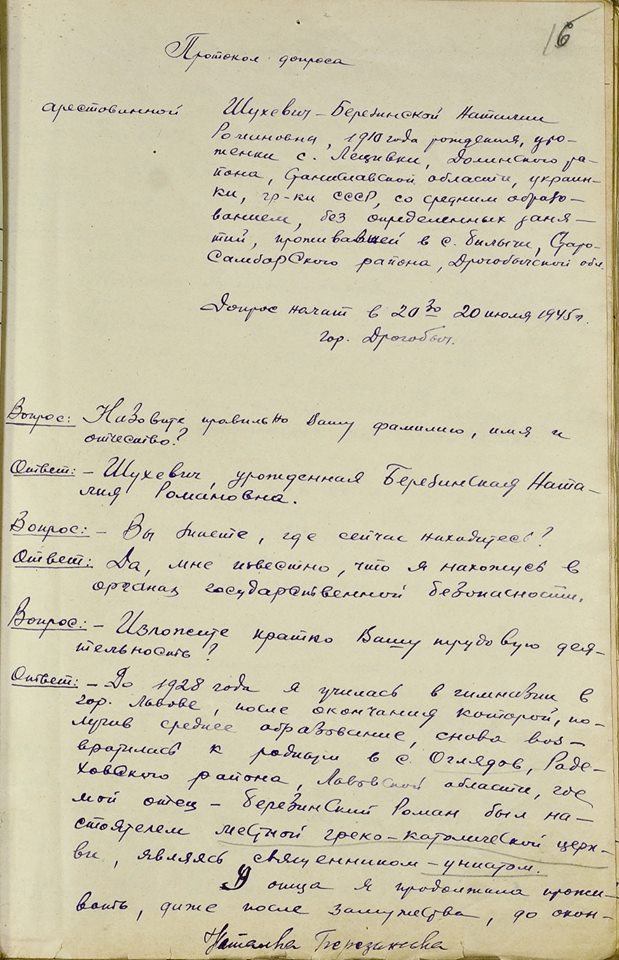 16
Протокол допроса
арестованной
Шухевич-Березинской Наталии
Романовны, 1910 года рождения, уро-
женки с. Лецивки, Долинского ра-
йона, Станиславской области, украин-
ки, гр-ки СССР, со средним образо-
ванием, без определенных заня-
тий, проживавшей в с. Биличи, Старо-
Самборского района, Дрогобычской обл.
Допрос начат в 20 30 20 июля 1945 г.
гор. Дрогобыч.
Вопрос: Назовите правильно Вашу фамилию, имя и
отчество?
Ответ: – Шухевич, урожденная Березинская Ната-
лия Романовна.
Вопрос: – Вы знаете, где сейчас находитесь?
Ответ: Да, мне известно, что я нахожусь в
органах государственной безопасности.
Вопрос: – Изложите кратко Вашу трудовую дея-
тельность?
Ответ: – До 1928 года я училась в гимназии в
гор. Львове, после окончания которой, по-
лучив среднее образование, снова воз-
вратилась к родным в с. Оглядов, Раде-
ховского района, Львовской области, где
мой отец – Березинский Роман был на-
стоятелем местной греко-католической церк-
ви, являясь священником-униатом.
У отца я продолжала прожи-
вать, даже после замужества, до окон-
Наталка Березинска